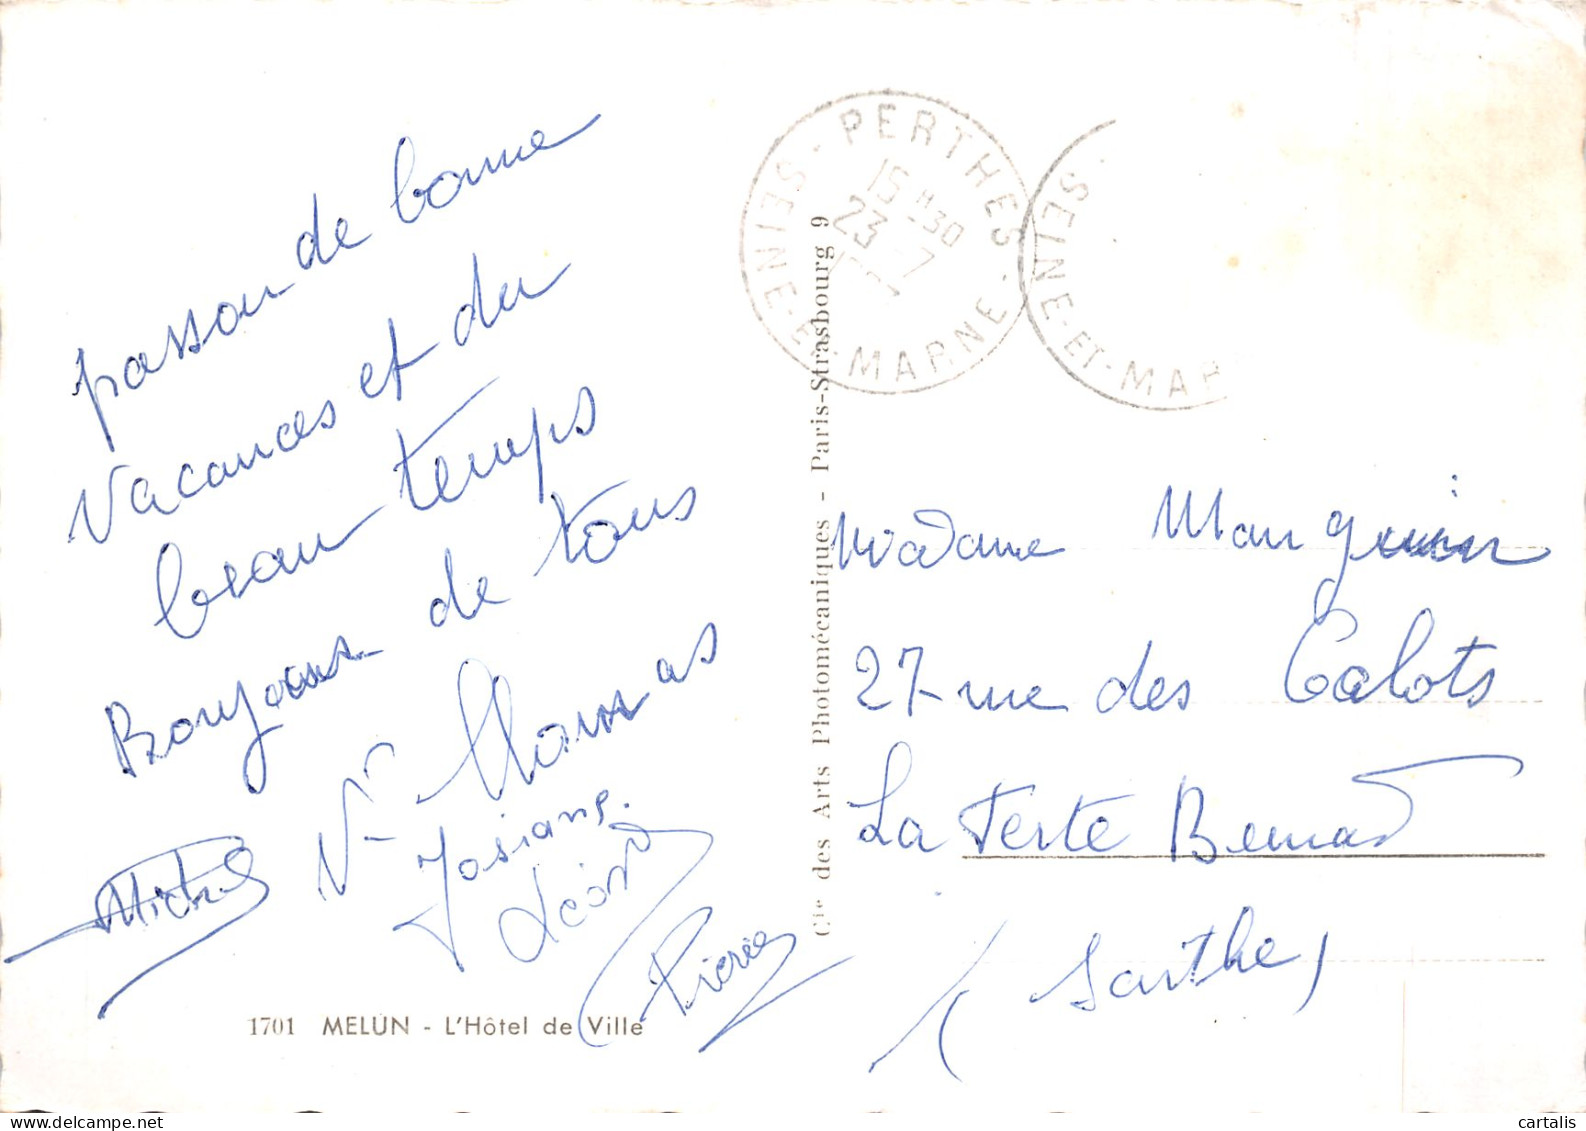 passon de bonne
vacances et du
beau temps
Bonjour de tous
Thomas
Josiane.
Léon
Michel
Pierre
1701 MELUN - L'Hôtel de Ville
Cie des Arts Photomécaniques - Paris-Strasbourg 9
PERTHES
15 H 30
23 -7
SEINE-ET-MARNE
SEINE-ET-MAR
Madame Manguin
27 rue des Calots
La Ferté Bernard
(Sarthe)
cartalis